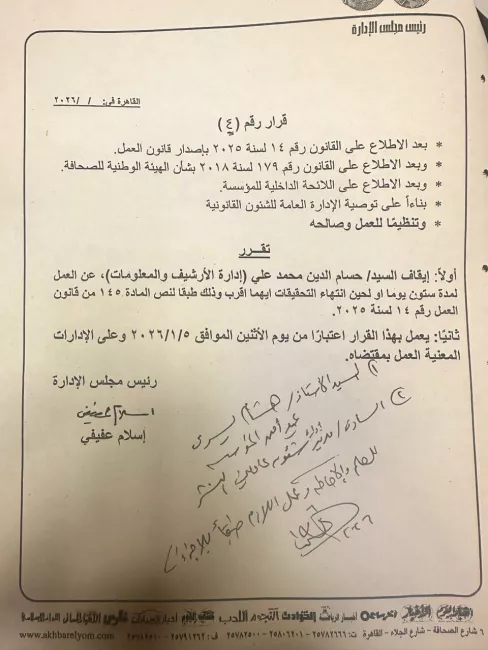 رئيس مجلس الإدارة
القاهرة في: / /٢٠٢٦
قرار رقم (٤)
* بعد الاطلاع على القانون رقم ١٤ لسنة ٢٠٢٥ بإصدار قانون العمل.
* وبعد الاطلاع على القانون رقم ١٧٩ لسنة ٢٠١٨ بشأن الهيئة الوطنية للصحافة.
* وبعد الاطلاع على اللائحة الداخلية للمؤسسة.
* بناءاً على توصية الإدارة العامة للشئون القانونية
* وتنظيمًا للعمل وصالحه
تقـــرر
أولاً: إيقاف السيد/ حسام الدين محمد علي (إدارة الأرشيف والمعلومات)، عن العمل
لمدة ستون يوما او لحين انتهاء التحقيقات ايهما اقرب وذلك طبقا لنص المادة ١٤٥ من قانون
العمل رقم ١٤ لسنة ٢٠٢٥.
ثانيًا: يعمل بهذا القرار اعتبارًا من يوم الأثنين الموافق ٢٠٢٦/١/٥ وعلى الإدارات
المعنية العمل بمقتضاه.
رئيس مجلس الإدارة
إسلام عفيفي
إسلام عفيفي
١ السيد الأستاذ/ هشام يسرى
٢ السادة/ مدير
للعلم والإحاطة وعمل اللازم طبقاً للإجراءات
٦ شارع الصحافة - شارع الجلاء - القاهرة
www.akhbarelyom.com